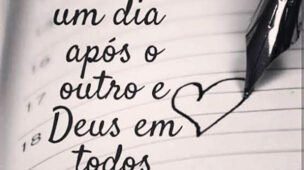 um dia
após o
outro e
Deus em
todos
17
18